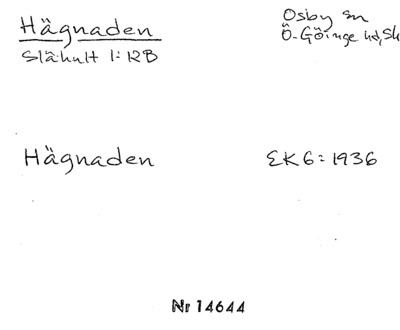 Hägnaden
Slähult 1:12B
Osby sn
Ö. Göinge hd, Sk
Hägnaden
EK6:1936
Nr 14644